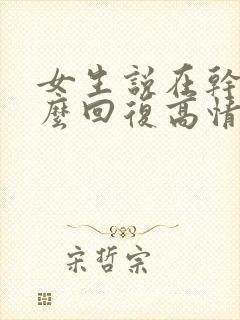 女生説在幹
麽回復高情
宋哲宗